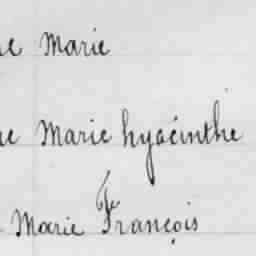 Marie
Marie hyacinthe
Marie François